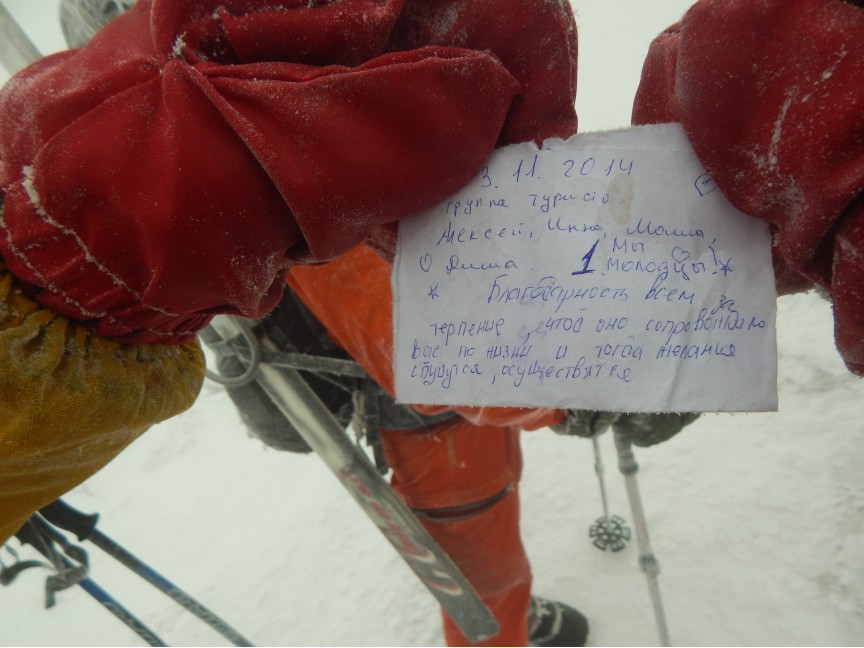 3. 11. 2014
группа туристо
Алексей, Инна, Маша,
Диша. 1 Мы молодцы!
* Благодарность всем за
терпение, чтоб оно сопровождало
Вас по жизни и тогда желания
сбудутся, осуществятся